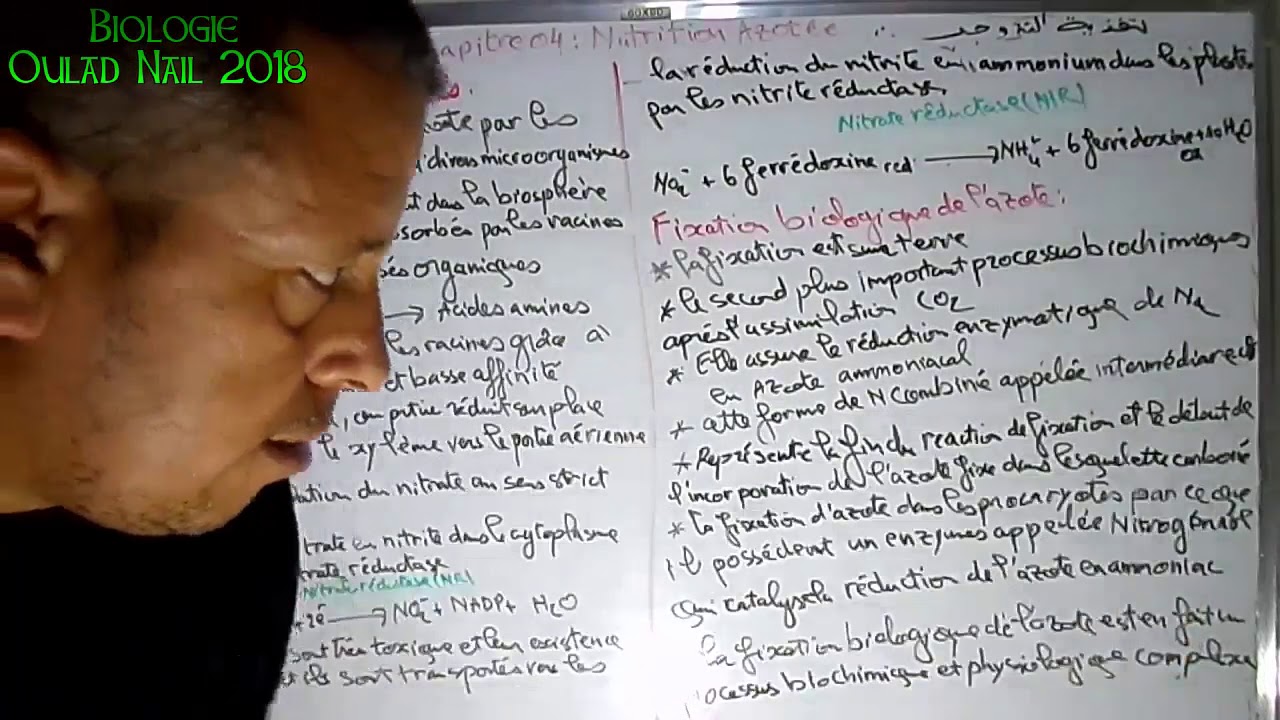 BIOLOGIE
OULAD NAIL 2018
apitre 04 : Nutrition Azotée
par les
microorganismes
dans la biosphère
par les racines
organiques
→ Acides amines
les racines grâce à
et basse affinité
le xylème vers le partie aérienne
du nitrate au sens strict
en nitrite dans le cytoplasme
réductase
Nitrate réductase (NR)
+2é → NO₂⁻ + NADP+ H₂O
toxique et leur existence
ils sont transportés vers les
la réduction du nitrite en ammonium dans les
par les nitrite réductase
Nitrate réductase (NIR)
+ 6 ferrédoxine red → NH₄ + 6 ferrédoxine ox
Fixation biologique de l'azote :
* la fixation est sur terre
* le second plus important processus biochimiques
après l'assimilation CO₂
* Elle assure le réduction enzymatique de N₂
en Azote ammoniacal
* cette forme de N combiné appelée
* Représente la fin du reaction de fixation et le début de
l'incorporation de l'azote fixe dans le squelette carboné
* la fixation d'azote dans les procaryotes par ce que
il possédent un enzymes appelée Nitrogénase
Qui catalyse la réduction de l'azote en ammoniac
la fixation biologique de l'azote est en fait un
processus biochimique et physiologique complexe